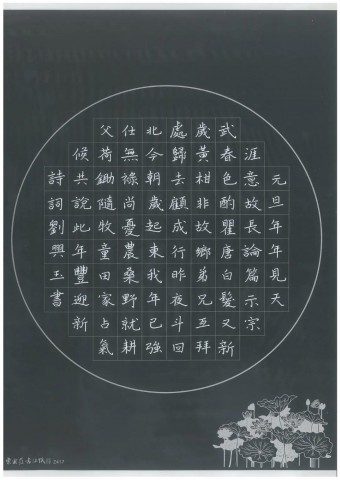 元旦年年見天
涯意故長論篇示宗
武春色酌瞿唐白髮又新
歲黃柑非故鄉弟兄互拜
處歸去顧成行昨夜斗回
北今朝歲起東我年已強
仕無祿尚憂農桑野就耕
父荷鋤隨牧童田家占氣
候共說此年豐迎新
詩詞劉興玉書
2017